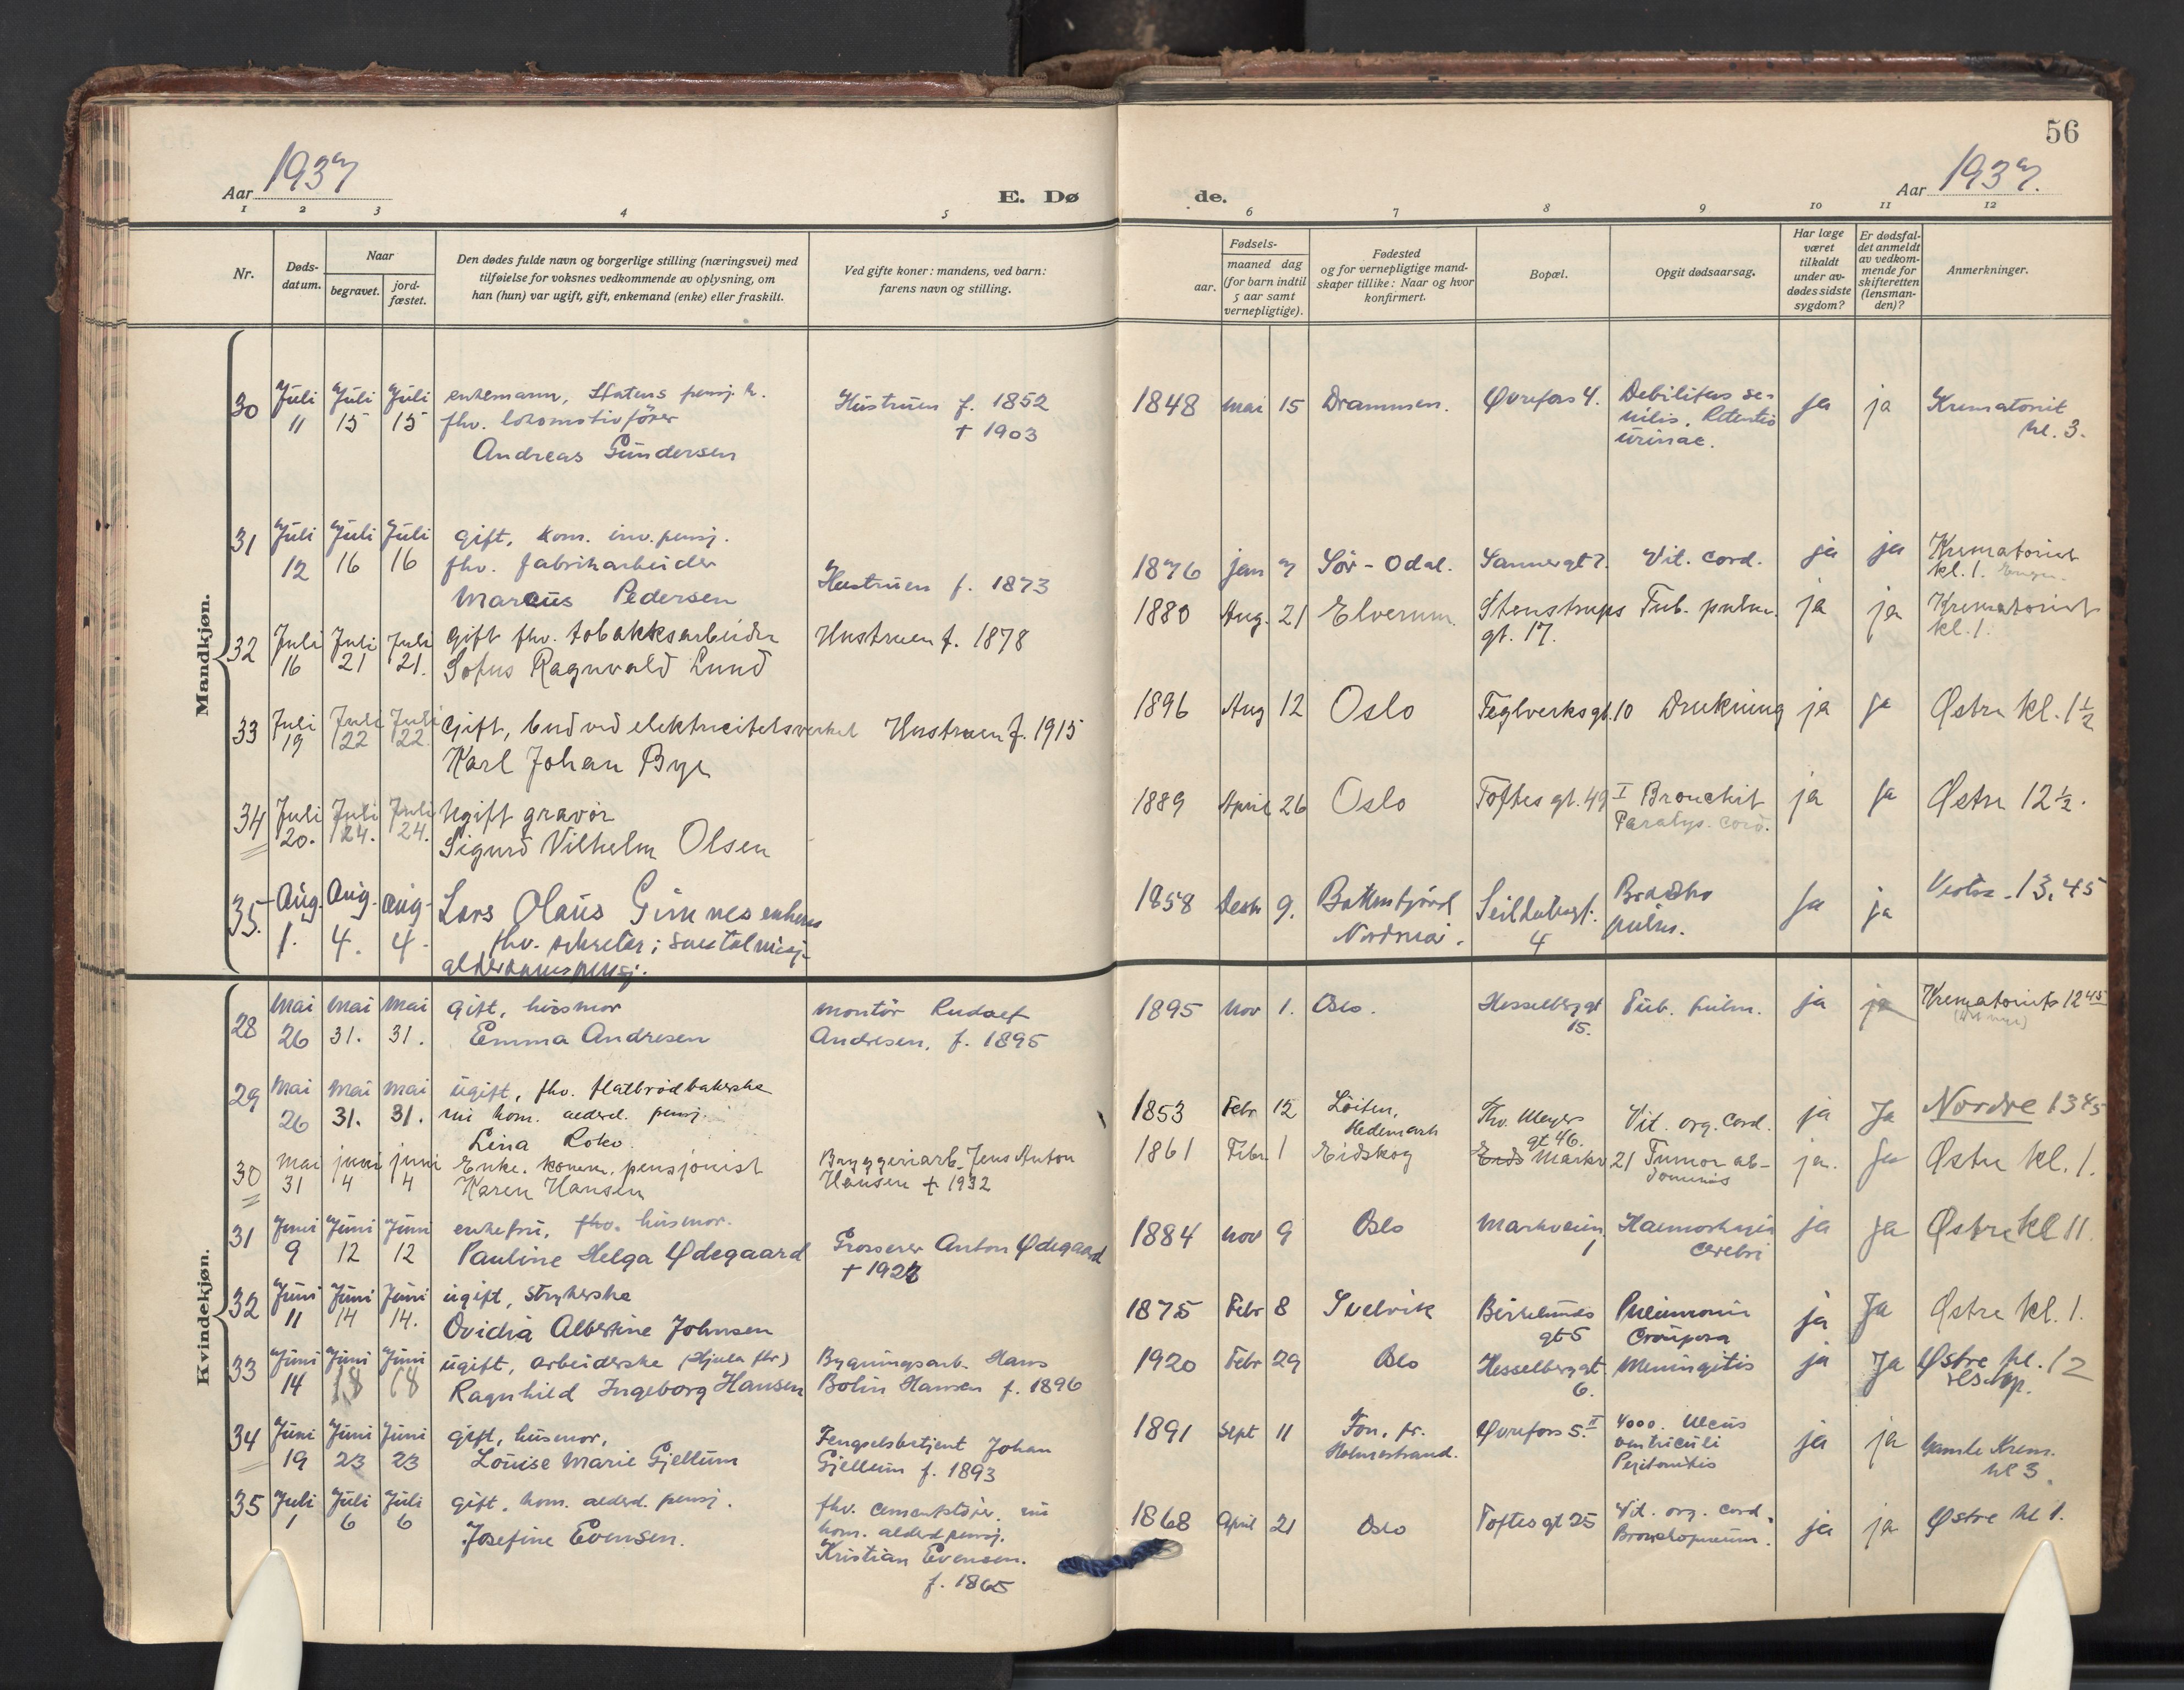 56
Aar 1937
Aar 1937.
E. Dø de.
1 2 3 4 5 6 7 8 9 10 11 12
Nr.
Døds-datum.
Naar
begravet.
jord-fæstet.
Den dødes fulde navn og borgerlige stilling (næringsvei) med
tilføielse for voksnes vedkommende av oplysning, om
han (hun) var ugift, gift, enkemand (enke) eller fraskilt.
Ved gifte koner: mandens, ved barn:
farens navn og stilling.
Fødsels-
aar.
maaned dag
(for barn indtil
5 aar samt
vernepligtige).
Fødested
og for vernepligtige mand-
skaper tillike: Naar og hvor
konfirmert.
Bopæl.
Opgit dødsaarsag.
Har læge
været
tilkaldt
under av-
dødes sidste
sygdom?
Er dødsfal-
det anmeldt
av vedkom-
mende for
skifteretten
(lensman-
den)?
Anmerkninger.
Mandkjøn.
30 Juli 11 Juli 15 Juli 15 enkemann, Statens pensj.
fhv. lokomotivfører
Andreas Gundersen
Hustruen f. 1852
† 1903
1848 mai 15 Drammen. Øvrefoss 4. Debilitas se-
nilis. Retentio
urinae.
ja ja Krematoriet
kl. 3.
31 Juli 12 Juli 16 Juli 16 gift, kom. inv. pensj.
fhv. fabrikarbeider
Marcus Pedersen
Hustruen f. 1873
1876 jan 7 Sør-Odal. Sannergt 7. Vit. cord. ja ja Krematoriet
kl. 1.
32 Juli 16 Juli 21 Juli 21. Gift fhv. tobakksarbeider
Sofus Ragnvald Lund
Hustruen f. 1878
1880 Aug. 21 Elverum. Stenstrups
gt. 17. Tub. pulm. ja ja Krematoriet
kl. 1.
33 Juli 19 Juli 22 Juli 22. Gift, bud ved elektricitetsverket
Karl Johan Bye
Hustruen f. 1915
1896 Aug 12 Oslo Teglverksgt. 10 Drukning ja ja Østre kl. 1 1/2
34 Juli 20. Juli 24. Juli 24. Ugift gravør
Sigurd Vilhelm Olsen
1889 April 26 Oslo Toftes gt. 49 I Bronchit
Paralys. cord.
ja ja Østre 12 1/2.
35. Aug. 1. Aug. 4. aug. 4. Lars Olaus Gimnes
fhv. sekretær;
1858 Desbr 9. Battenfjord
Nordmør. Seilduksgt.
4
pulm.
ja ja Vestre. 13.45
Kvindekjøn.
28 Mai 26 Mai 31. Mai 31. gift, husmor
Emma Andresen
montør Rudolf
Andresen, f. 1895
1895 Nov 1. Oslo. Hesselberg gt
15. Tub. pulm. ja ja Krematoriets 12 45
29 Mai 26 Mai 31. Mai 31. ugift, fhv. flatbrødbakerske
nu kom. alderd. pensj.
Lina Roko.
1853 Febr 12 Løiten,
Hedemark Thv. Meyers
gt 46. Vit. org. cord. ja Ja Nordre 13 45
30 Mai 31 juni 4 juni 4 Enke. komm. pensjonist
Karen Hansen
Bryggeriarb. Jens Anton
Hansen † 1932
1861 Febr 1 Eidskog Markv 21 Tumor ab-
dominis
ja. Ja Østre kl. 1.
31 Juni 9 Juni 12 Juni 12 enkefru, fhv. husmor.
Pauline Helga Ødegaard
Grosserer Anton Ødegaard
† 1927
1884 Nov 9 Oslo Markveien
1 Haemorhagia
cerebri
ja ja Østre kl 11.
32 Juni 11 Juni 14 Juni 14. ugift, strykerske
Ovidia Albertine Johnsen
1875 Febr 8 Svelvik Birkelunds
gt 5 Pneumonia
Crouposa
ja Ja Østre kl. 1.
33 Juni 14 Juni 18 Juni 18 ugift, arbeiderske (Hjula fbr)
Ragnhild Ingeborg Hansen
Bygningsarb. Hans
Bolin Hansen f. 1896
1920 Febr 29 Oslo Hesselberg gt
6. Meningitis ja Ja Østre kl. 12
34 Juni 19 Juni 23 Juni 23 gift, husmor,
Louise Marie Gjellum
Fengselsbetjent Johan
Gjellum f. 1893
1891 Sept 11 Fon, pr.
Holmestrand. Øvrefoss 5. II Ulcus
ventriculi
Peritonitis
ja ja Gamle Krem.
kl 3.
35 Juli 1 Juli 6 Juli 6 gift, kom. alderd. pensj.
Josefine Evensen.
fhv. cementstøper, nu
kom. alderd. pensj.
Kristian Evensen.
f. 1865
1868 April 21 Oslo Toftes gt 25 Vit. org. cord.
Bronchopneum.
ja ja Østre kl 1.